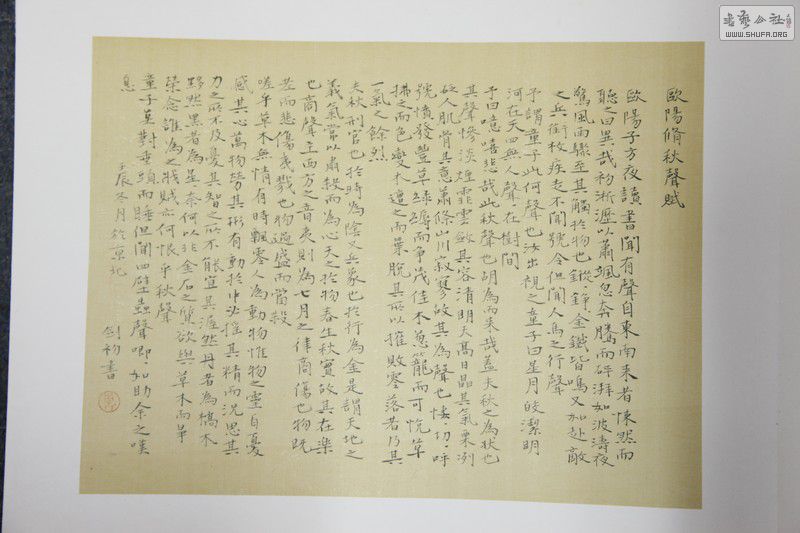 歐陽脩秋聲賦
歐陽子方夜讀書聞有聲自東南來者悚然而
聽之曰異哉初淅瀝以蕭颯忽奔騰而砰湃如波濤夜
驚風雨驟至其觸於物也鏦錚金鐵皆鳴又如赴敵
之兵銜枚疾走不聞號令但聞人馬之行聲
予謂童子此何聲也汝出視之童子曰星月皎潔明
河在天四無人聲聲在樹間
予曰噫嘻悲哉此秋聲也胡為而來哉蓋夫秋之為狀也
其色慘淡煙霏雲斂其容清明天高日晶其氣栗冽
砭人肌骨其意蕭條山川寂寥故其為聲也悽切呼
號憤發豐草綠縟而爭茂佳木蔥籠而可悅草
拂之而色變木遭之而葉脫其所以摧敗零落者乃其
一氣之餘烈
夫秋刑官也於時為陰又兵象也於行為金是謂天地之
義氣常以肅殺而為心天之於物春生秋實故其在樂
也商聲主西方之音夷則為七月之律商傷也物既
老而悲傷夷戮也物過盛而當殺
嗟乎草木無情有時飄零人為動物惟物之靈百憂
感其心萬物勞其形有動於中必搖其精而況思其
力之所不及憂其智之所不能宜其渥然丹者為槁木
黟然黑者為星奈何以非金石之質欲與草木而爭
榮念誰為之戕賊亦何恨乎秋聲
童子莫對垂頭而睡但聞四壁蟲聲唧唧如助余之嘆
息
壬辰冬月於京北
劍初書
書藝公社
WWW.SHUFA.ORG